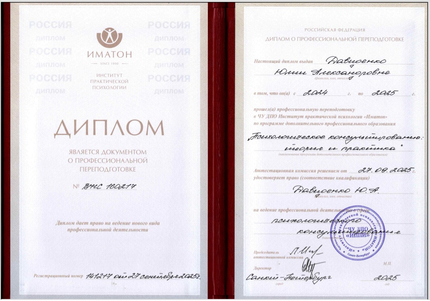 РОССИЯ РОССИЯ
ДИПЛОМ ДИПЛОМ
ИМАТОН
ИНСТИТУТ
ПРАКТИЧЕСКОЙ
ПСИХОЛОГИИ
ДИПЛОМ
ЯВЛЯЕТСЯ ДОКУМЕНТОМ
О ПРОФЕССИОНАЛЬНОЙ
ПЕРЕПОДГОТОВКЕ
№
Диплом дает право на ведение нового вида
профессиональной деятельности
Регистрационный номер 141217 от 27 сентября 2025г
РОССИЙСКАЯ ФЕДЕРАЦИЯ
ДИПЛОМ О ПРОФЕССИОНАЛЬНОЙ ПЕРЕПОДГОТОВКЕ
Настоящий диплом выдан Давиденко
Юлии Александровне
в том, что он(а) с 2024 по 2025
прошел(а) профессиональную переподготовку
в ЧУ ДПО Институт практической психологии «Иматон»
по программе дополнительного профессионального образования
"Психологическое консультирование:
теория и практика"
Аттестационная комиссия решением от 27.09.2025г
удостоверяет право (соответствие квалификации)
Давиденко Ю.А.
на ведение профессиональной деятельности в сфере
психологического
консультирования
Председатель
комиссии
Секретарь
Санкт-Петербург 2025